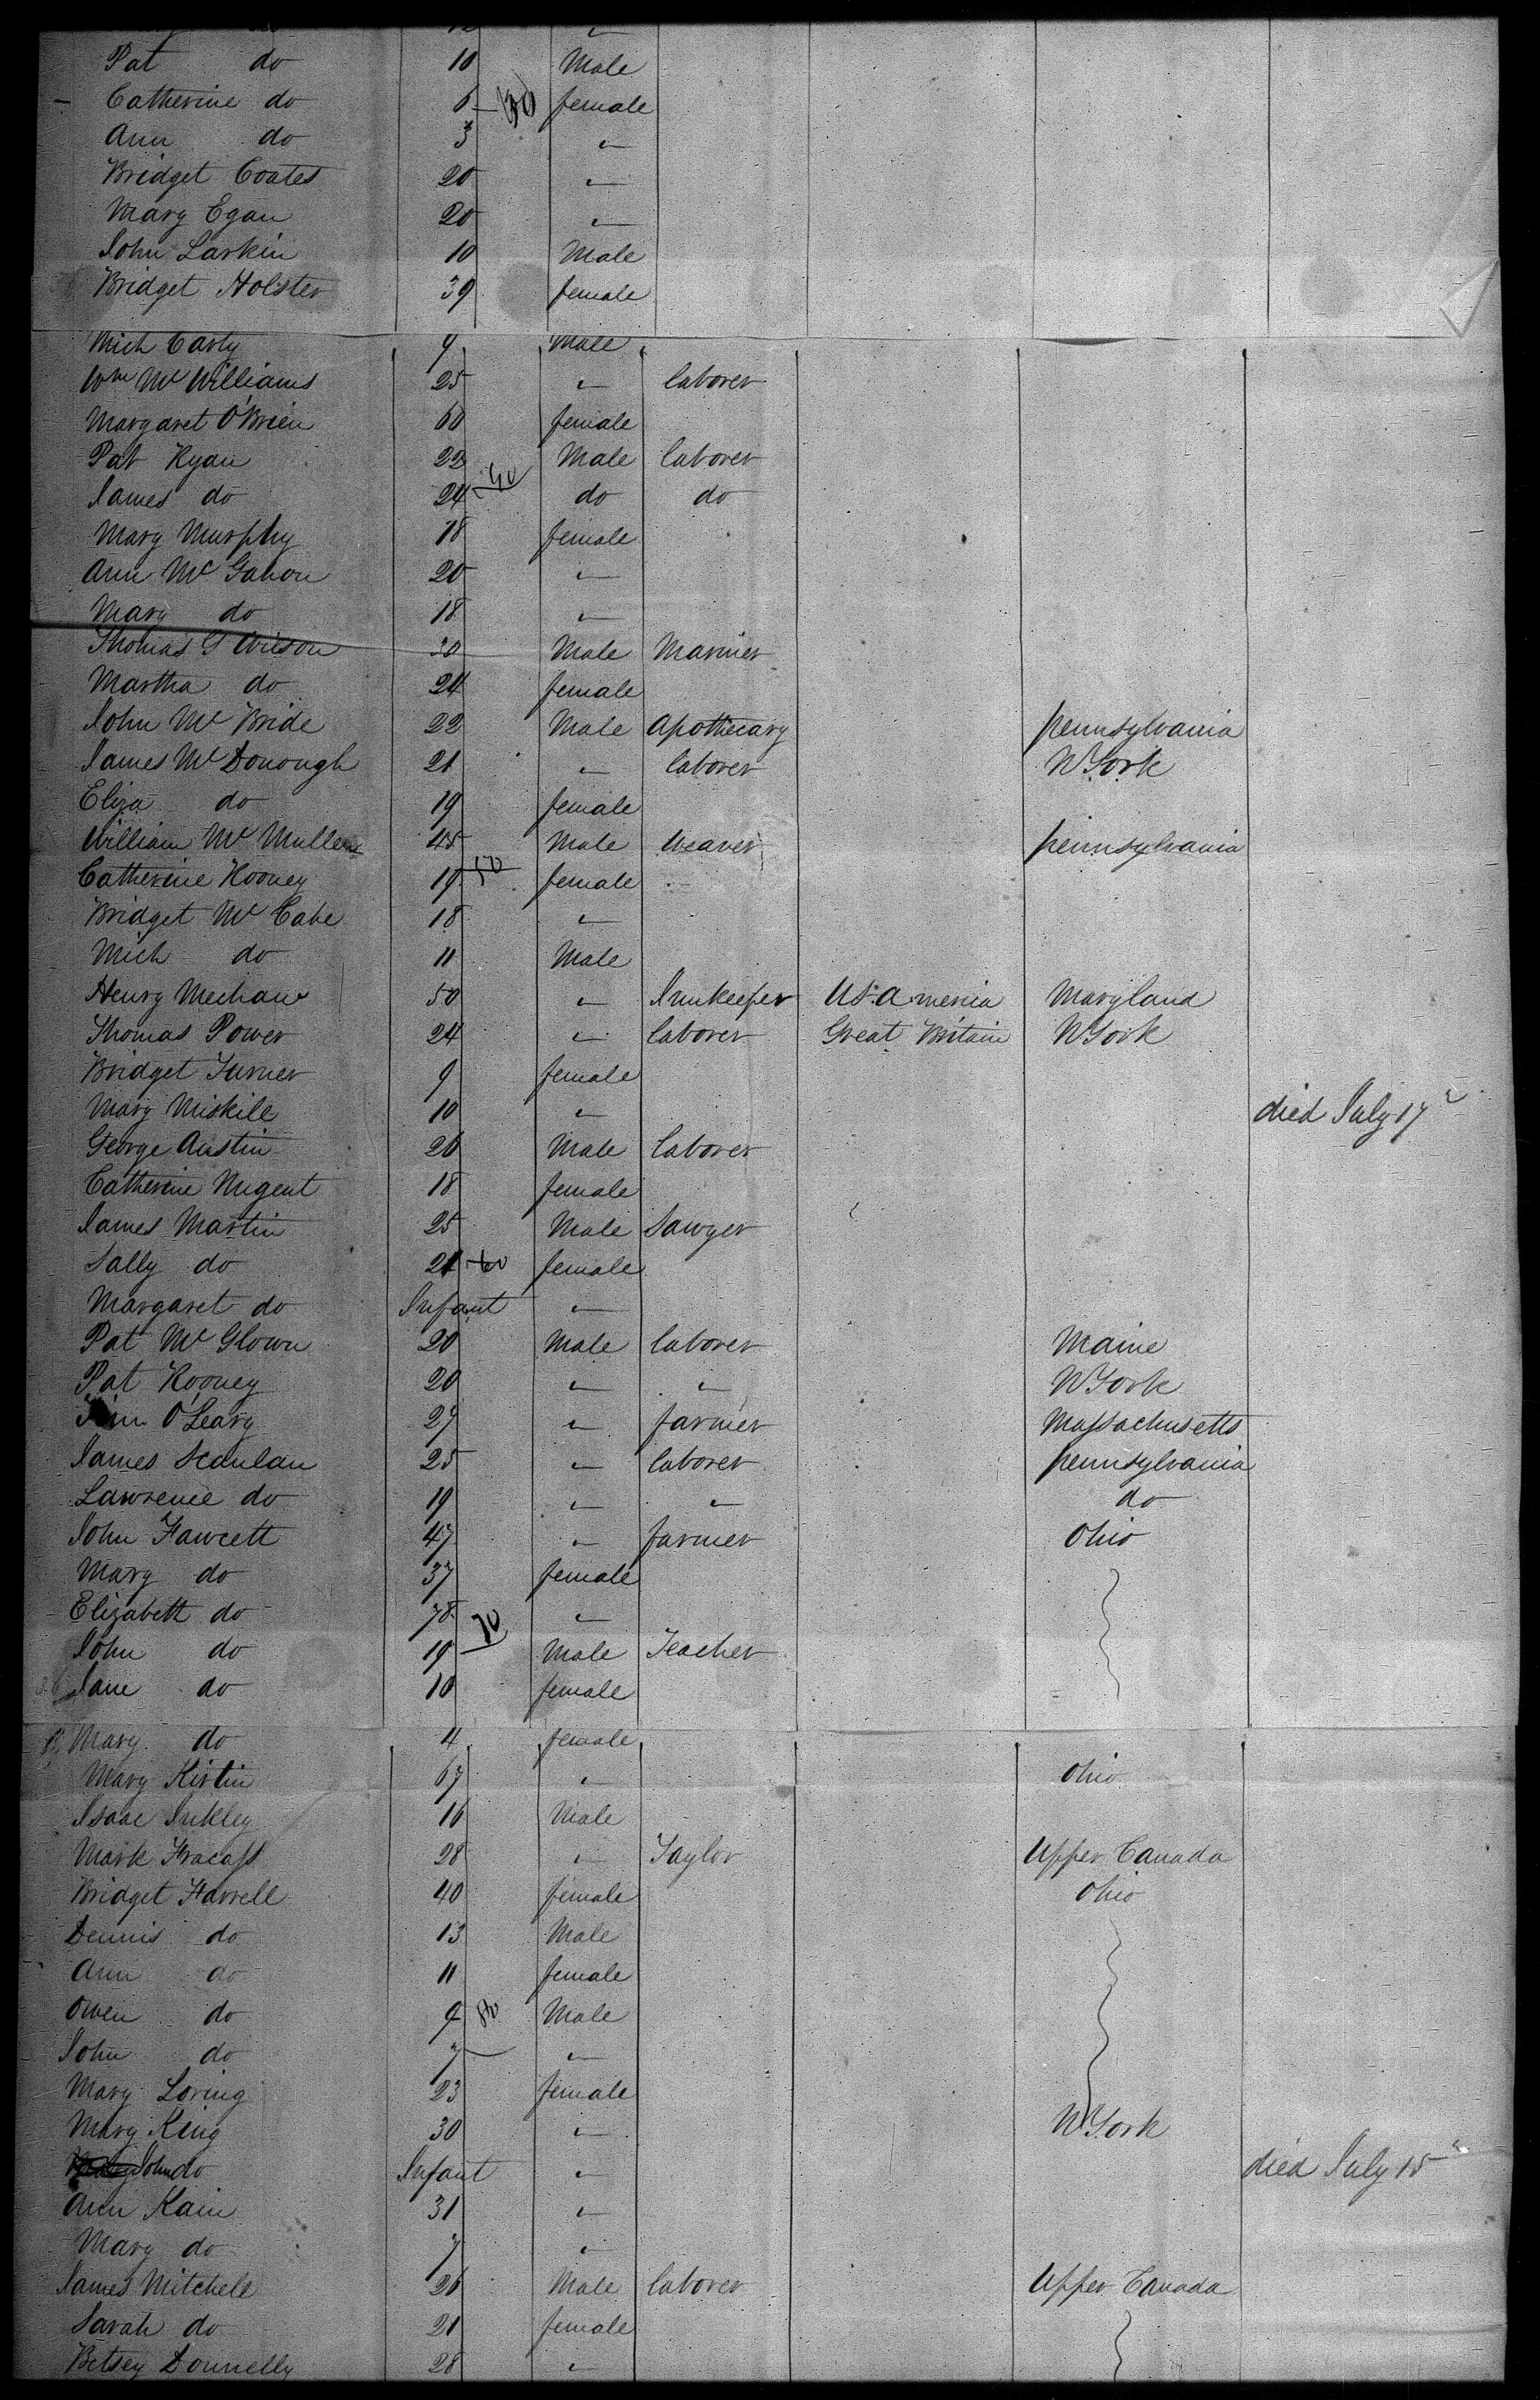 Pat do 10 Male
Catherine do 6 30 female
Ann do 3 "
Bridget Coates 20 "
Mary Egan 20 "
John Larkin 10 Male
Bridget Holster 39 female
Mich Carty 9 Male
Wm Mc Williams 25 " laborer
Margaret O'Brien 60 female
Pat Ryan 22 Male laborer
James do 24 40 do do
Mary Murphy 18 female
Ann Mc Gahon 20 "
Mary do 18 "
Thomas G Wilson 30 Male Mariner
Martha do 24 female
John Mc Bride 22 Male Apothecary pennsylvania
James Mc Donough 21 " laborer N York
Eliza do 19 female
William Mc Mullen 45 Male Weaver pennsylvania
Catherine Rooney 19 50 female
Bridget Mc Cabe 18 "
Mich do 11 Male
Henry Mechaw 50 " Innkeeper U S. America Maryland
Thomas Power 24 " laborer Great Britain N York
Bridget Turner 9 female
Mary Miskile 10 " died July 17
George Austin 26 Male laborer
Catherine Nugent 18 female
James Martin 25 Male Sawyer
Sally do 21 60 female
Margaret do Infant "
Pat Mc Glown 20 Male laborer Maine
Pat Rooney 20 " " N York
O'Leary 27 " farmer Massachusetts
James Scanlan 25 " laborer pennsylvania
Lawrence do 19 " " do
John Fawcett 47 " farmer Ohio
Mary do 37 female
Elizabeth do 78 "
John do 19 70 Male Teacher
Jane do 10 female
Mary do 4 female
Mary Kirtin 67 " Ohio
Isaac Inkley 16 Male
Mark Fracass 28 " Taylor Upper Canada
Bridget Farrell 40 female Ohio
Dennis do 13 Male
Ann do 11 female
Owen do 9 80 Male
John do 7 "
Mary Loring 23 female
Mary King 30 " N York
John do Infant " died July 15
Ann Kain 31 "
Mary do 7 "
James Mitchell 26 Male laborer Upper Canada
Sarah do 21 female
Betsey Donnelly 28 "